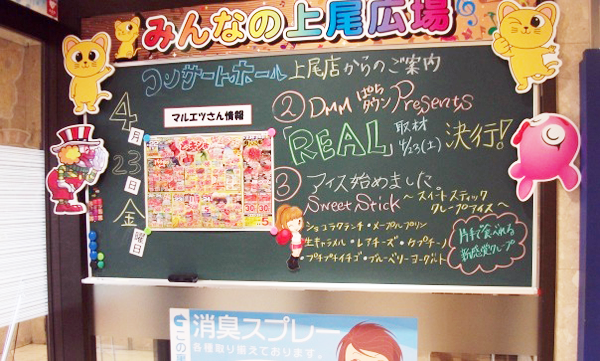 みんなの上尾広場
コンサートホール上尾店からのご案内
4月23日金曜日
マルエツさん情報
② DMMぱちタウン Presents
「REAL」取材 4/23(土) 決行!
③ アイス始めました。
Sweet Stick ～スイートスティック
クレープアイス～
ショコラクランチ・メープルプリン
生キャラメル・レアチーズ・カプチーノ
プチプチイチゴ・ブルーベリーヨーグルト
片手で食べれる
新感覚クレープ
消臭スプレー
各種取り揃えております。